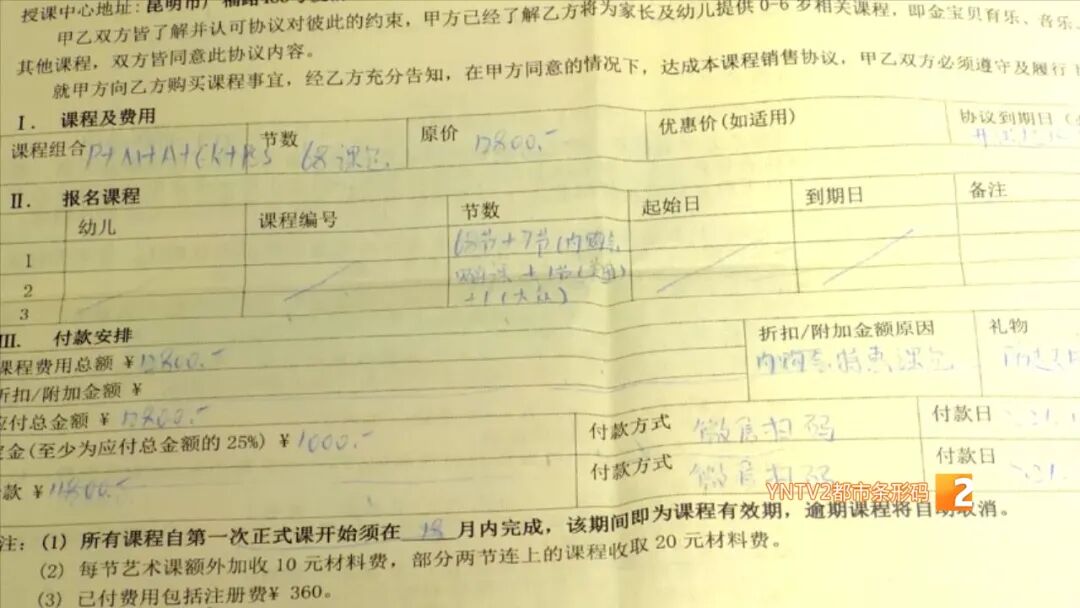 授课中心地址: 昆明市广福路488号
甲乙双方皆了解并认可协议对彼此的约束, 甲方已经了解乙方将为家长及幼儿提供 0-6 岁相关课程, 即金宝贝育乐、音乐、
其他课程, 双方皆同意此协议内容。
就甲方向乙方购买课程事宜, 经乙方充分告知, 在甲方同意的情况下, 达成本课程销售协议, 甲乙双方必须遵守及履行
I. 课程及费用
课程组合 节数 68课包 原价 12800.- 优惠价(如适用) 协议到期日
II. 报名课程
幼儿 课程编号 节数 起始日 到期日 备注
1 68节+7节(内购会
2 +1节(美团)
3
III. 付款安排
课程费用总额 ¥ 12800.- 折扣/附加金额原因 礼物
折扣/附加金额 ¥ 内购会特惠课包
应付总金额 ¥ 12800.- 付款方式 微信扫码 付款日
定金(至少为应付总金额的 25%) ¥ 1000.-
款 ¥ 11800.- 付款方式 微信扫码 付款日
YNTV2都市条形码 2
注: (1) 所有课程自第一次正式课开始须在 18 月内完成, 该期间即为课程有效期, 逾期课程将自动取消。
(2) 每节艺术课额外加收 10 元材料费, 部分两节连上的课程收取 20 元材料费。
(3) 已付费用包括注册费¥ 360。